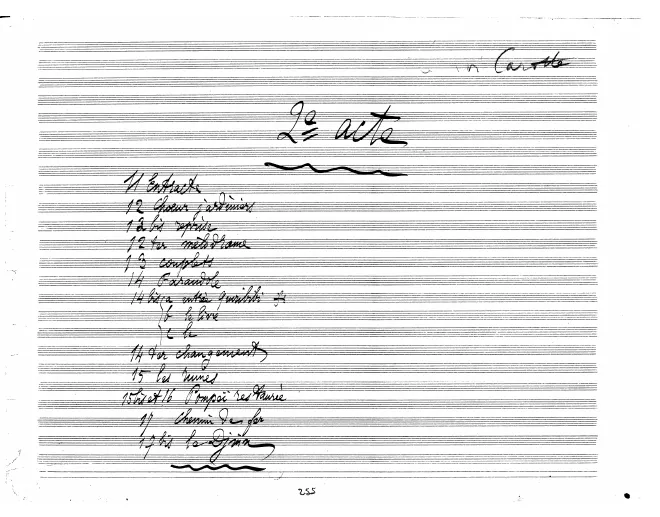 Roi Carotte
2e acte
11 Entracte
12 Choeur jardiniers
12 bis reprise
12 ter mélodrame
13 couplets
14 Farandole
14 bis a entrée Quiribibi
b le livre
c le
14 ter changement
15 les ruines
15 bis et 16 Pompeï restaurée
17 Chemin de fer
17 bis le Djinn
255